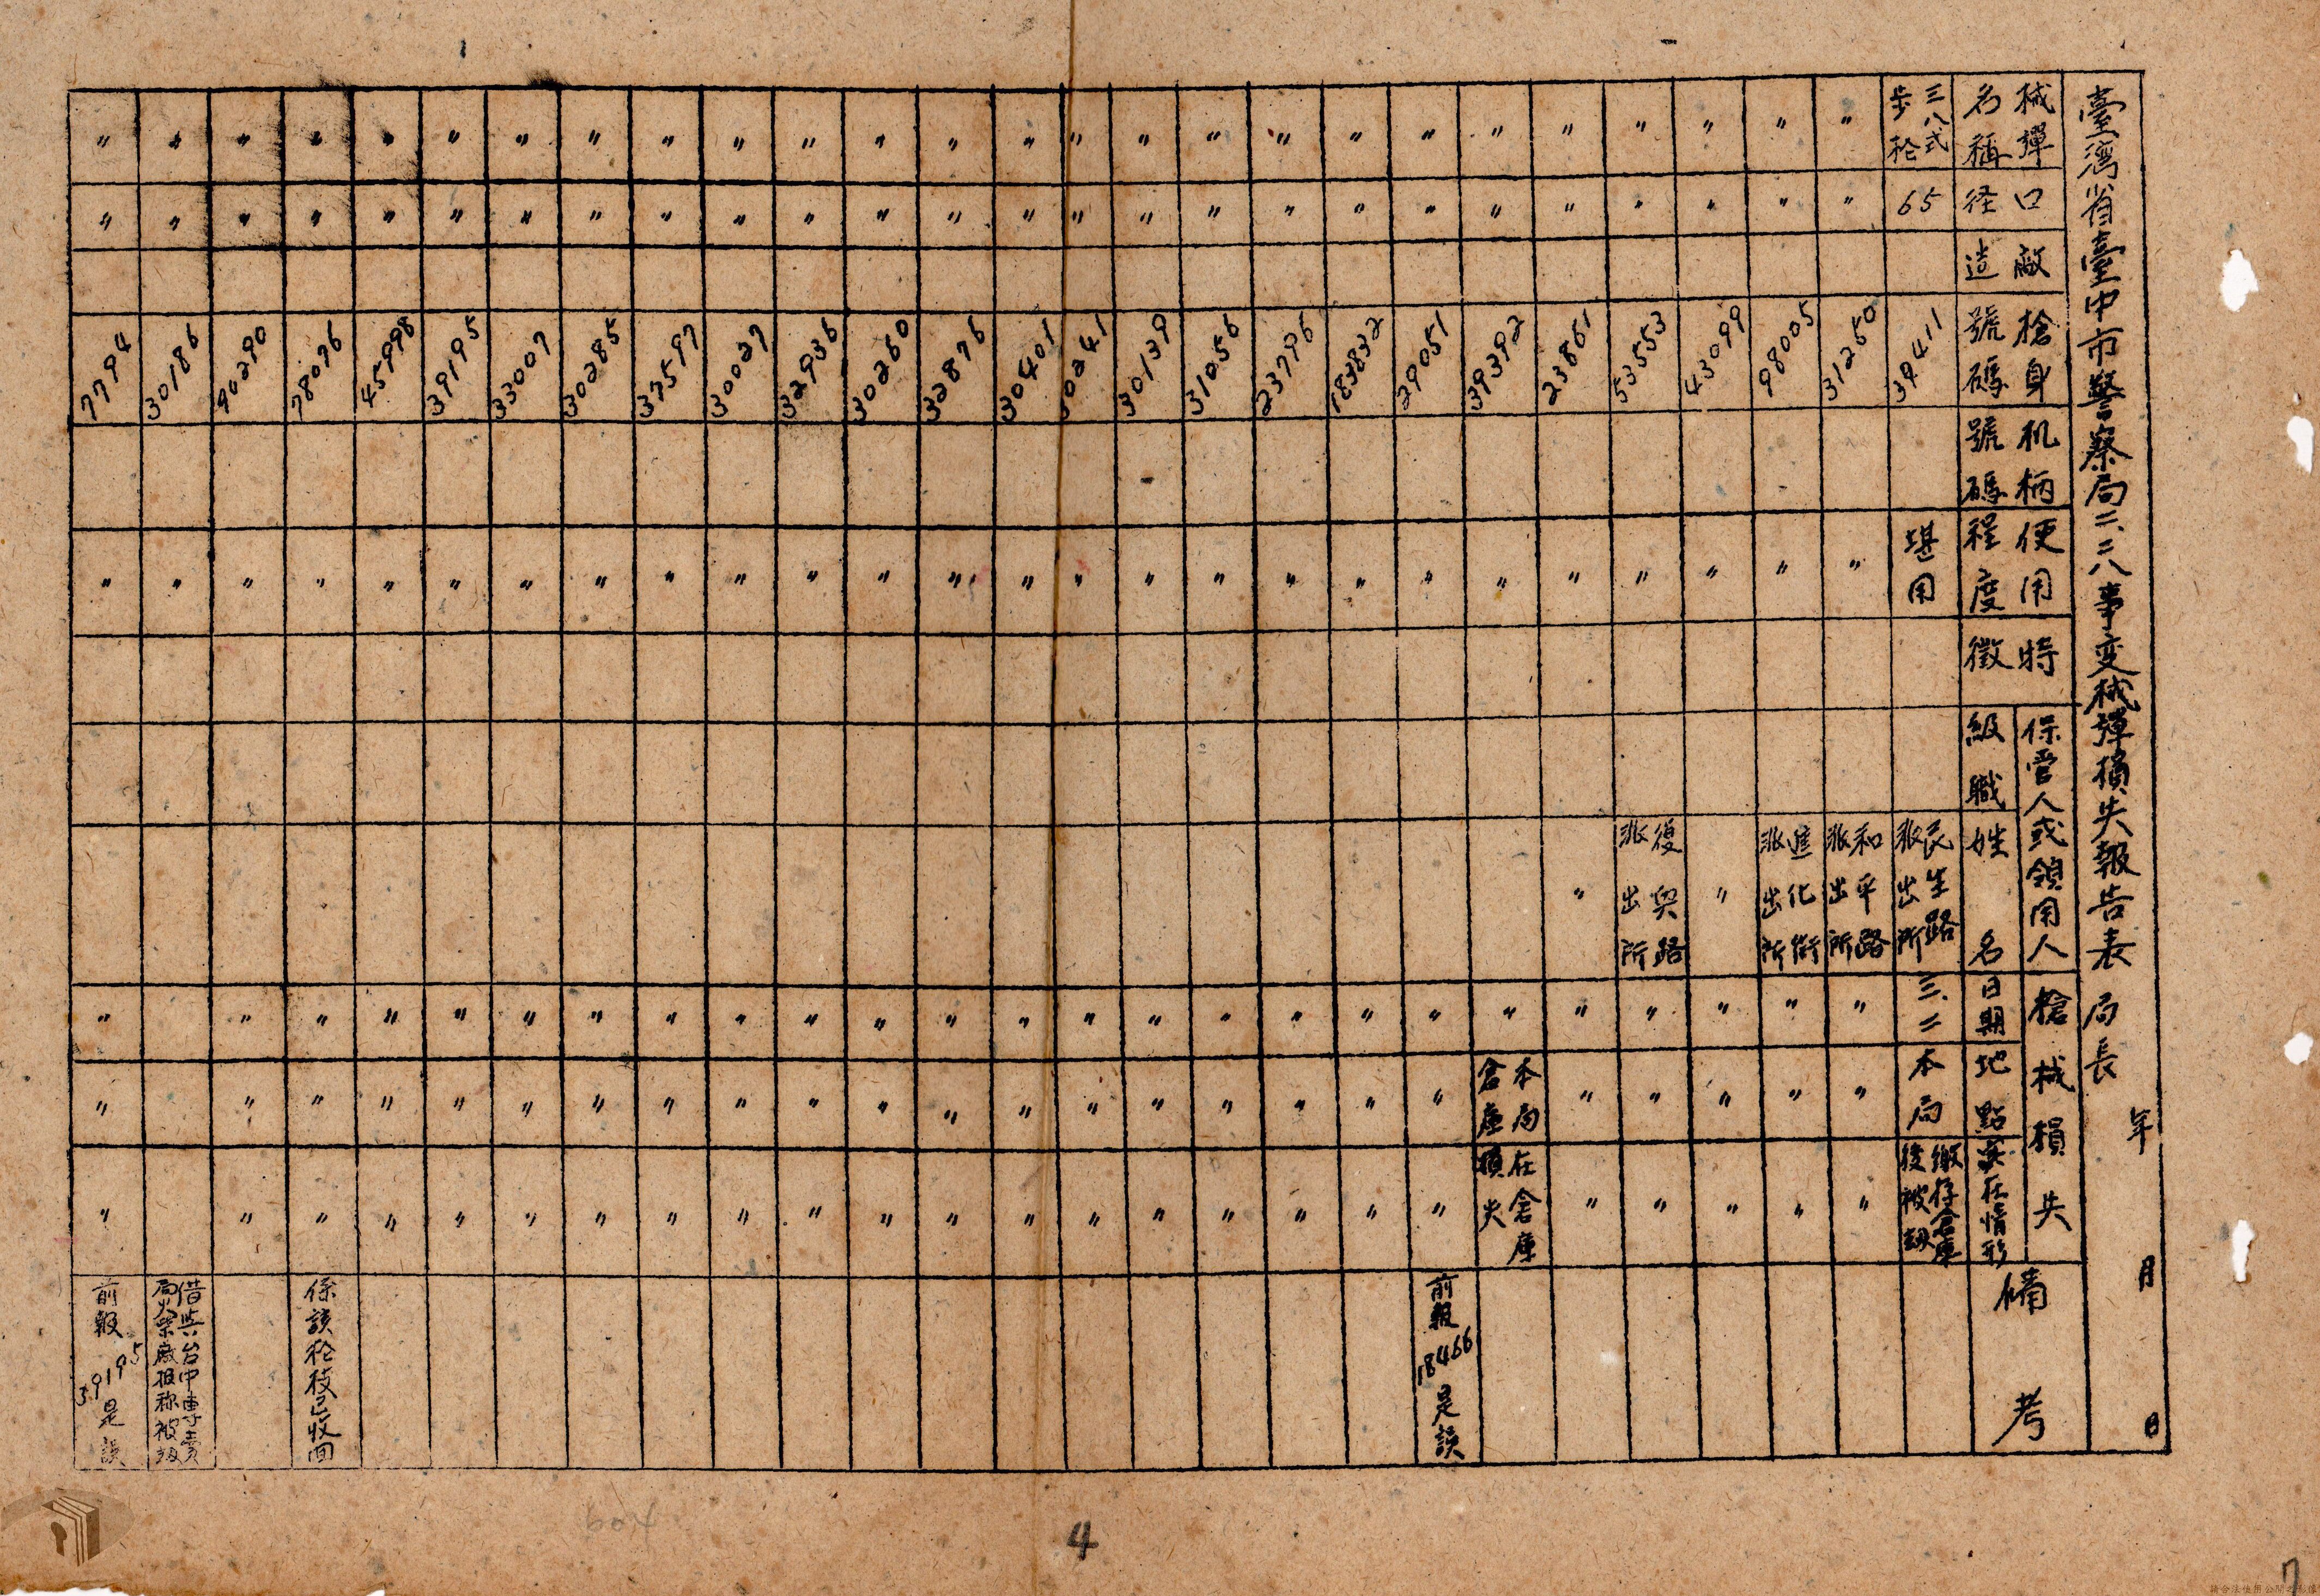 臺灣省臺中市警察局二、二八事变械彈損失報告表 局長 年 月 日
械彈名稱 口径 廠造 槍身號碼 机柄號碼 使用程度 特徵 保管人或領用人 級職 姓名 槍械損失 日期 地點 損失情形 備考
三八式步枪 65 39411 堪用 民生路派出所 三、二 本局 繳存倉庫後被刼
〃 〃 31250 〃 和平路派出所 〃 〃 〃
〃 〃 98005 〃 進化街派出所 〃 〃 〃
〃 〃 43099 〃 〃 〃 〃 〃
〃 〃 53553 〃 復興路派出所 〃 〃 〃
〃 〃 23861 〃 〃 〃 〃 〃
〃 〃 39392 〃 〃 本局倉庫 在倉庫損失
〃 〃 29051 〃 〃 〃 〃 前報18466是誤
〃 〃 183832 〃 〃 〃 〃
〃 〃 23796 〃 〃 〃 〃
〃 〃 31056 〃 〃 〃 〃
〃 〃 30139 〃 〃 〃 〃
〃 〃 30241 〃 〃 〃 〃
〃 〃 30401 〃 〃 〃 〃
〃 〃 32876 〃 〃 〃 〃
〃 〃 30260 〃 〃 〃 〃
〃 〃 32936 〃 〃 〃 〃
〃 〃 30027 〃 〃 〃 〃
〃 〃 37597 〃 〃 〃 〃
〃 〃 30285 〃 〃 〃 〃
〃 〃 33007 〃 〃 〃 〃
〃 〃 39195 〃 〃 〃 〃
〃 〃 45998 〃 〃 〃 〃
〃 〃 78096 〃 〃 〃 〃 係該枪枝已收回
〃 〃 90290 〃 〃 〃 〃
〃 〃 30186 〃 借與台中專賣局火柴廠根称被刼
〃 〃 7794 〃 〃 〃 〃 前報39195是誤
604
4
7